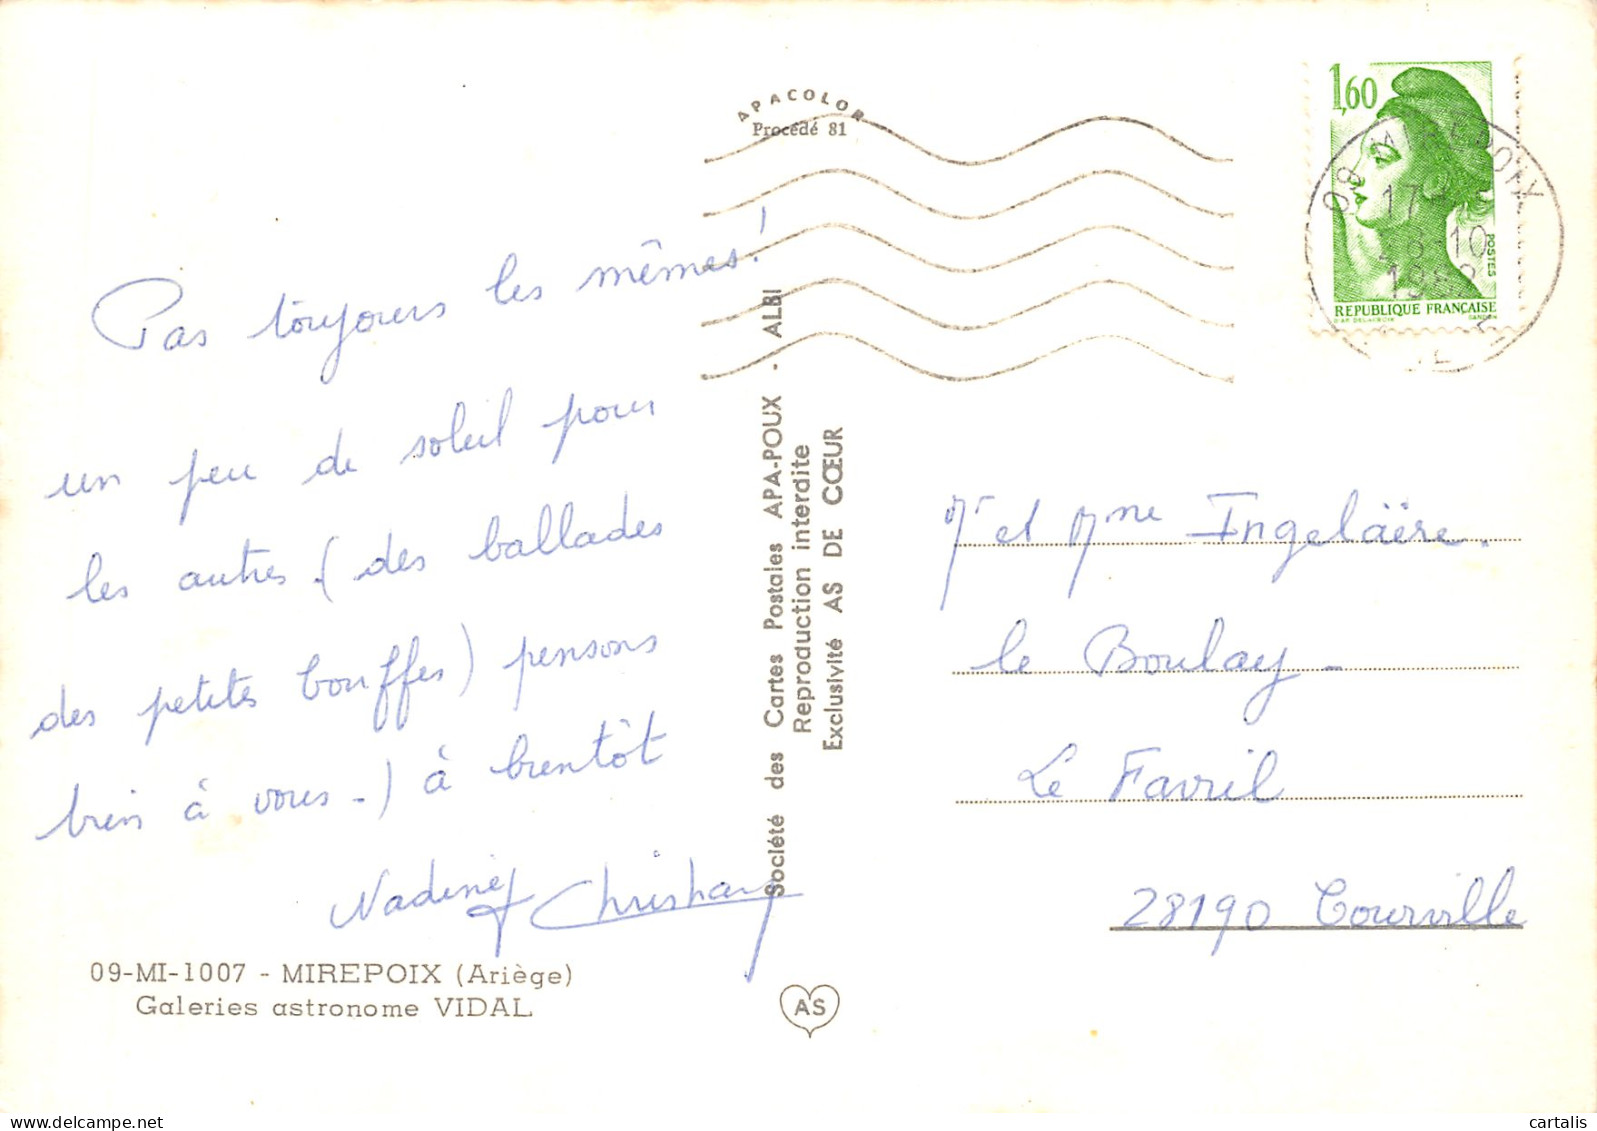 Pas toujours les mêmes!
un peu de soleil pour
les autres. (des ballades
des petites bouffes) pensons
bien à vous. -) à bientôt
Nadine & Christian
09-MI-1007 - MIREPOIX (Ariège)
Galeries astronome VIDAL
APACOLOR
Procédé 81
Société des Cartes Postales APA-POUX - ALBI
Reproduction interdite
Exclusivité AS DE CŒUR
AS
1,60
POSTES
REPUBLIQUE FRANÇAISE
09 MIREPOIX
17
10
Mr et Mme Ingeläère.
le Boulay -
Le Favril
28190 Courville
cartalis